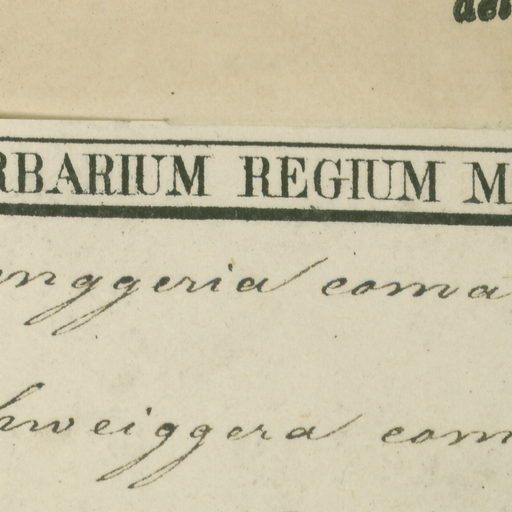 del
RBARIUM REGIUM M
nggeria coma
hweiggera com